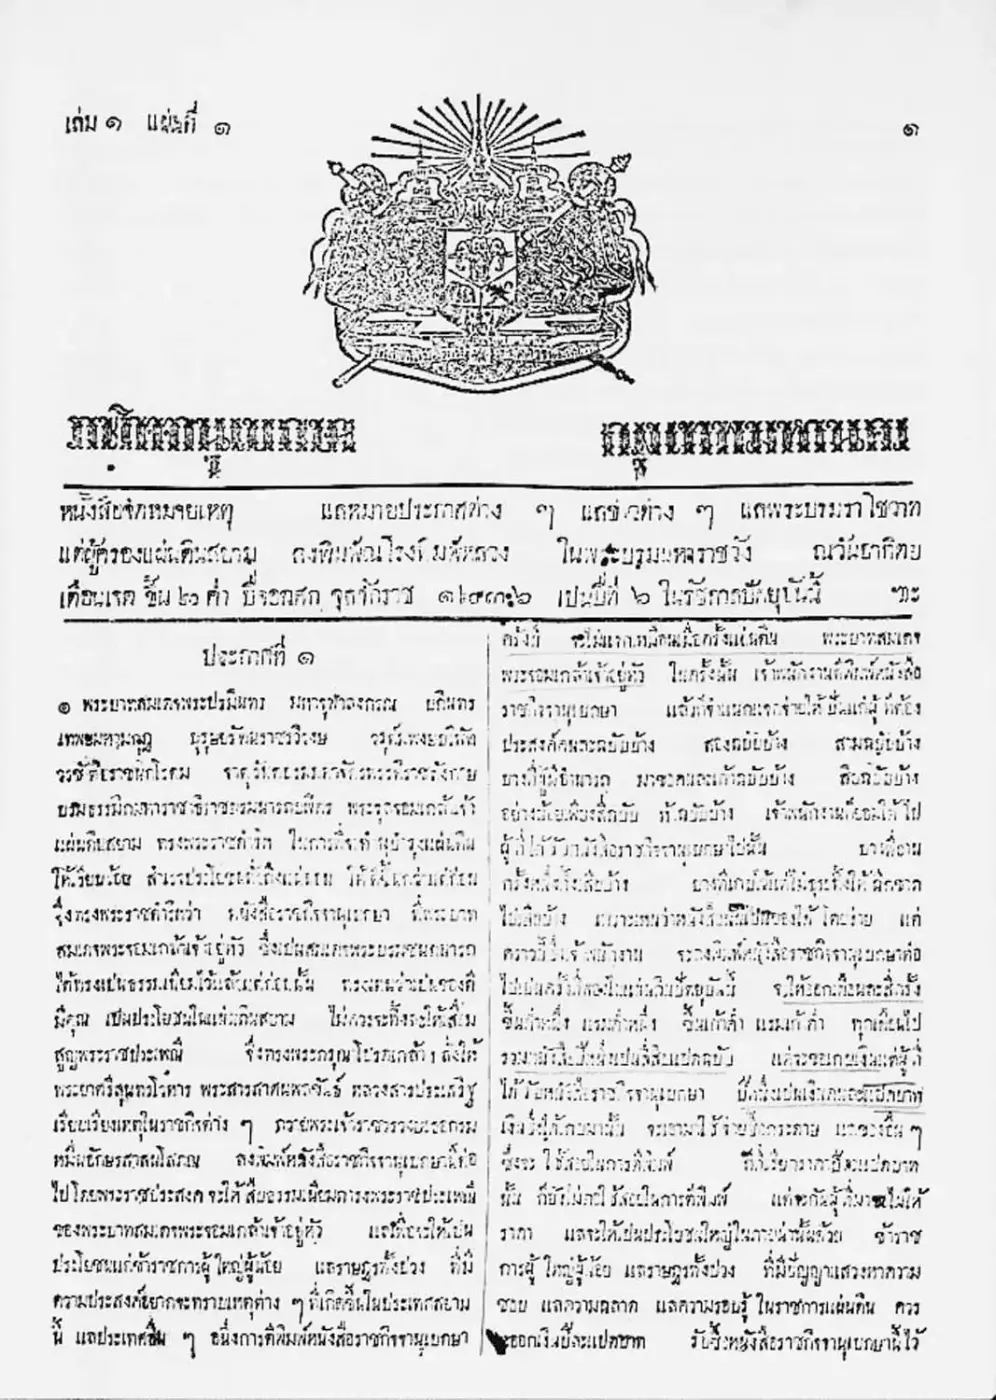 เล่ม ๑ แผ่นที่ ๑
๑
ราชกิจจานุเบกษา
กรุงเทพมหานคร
หนังสือจดหมายเหตุ แลหมายประกาศต่าง ๆ แลข่าวต่าง ๆ แลพระบรมราโชวาท
แต่ผู้ครองแผ่นดินสยาม ลงพิมพ์ณโรงพิมพ์หลวง ในพระบรมมหาราชวัง ณวันอาทิตย
เดือนเจด ขึ้น ๒ ค่ำ ปีจอฉศก จุลศักราช ๑๒๓๖ เปนปีที่ ๖ ในรัชกาลปัตยุบันนี้ ฯะ
ประกาศที่ ๑
๑ พระบาทสมเดจพระปรมินทร มหาจุฬาลงกรณ บดินทร
เทพยมหามกุฏ บุรุษยรัตนราชรวิวงษ
บรมธรรมิกมหาราชาธิราช พระจุลจอมเกล้าเจ้า
แผ่นดินสยาม ทรงพระราชดำริห ในการที่จะทำนุบำรุงแผ่นดิน
ให้เรียบร้อย
จึ่งทรงพระราชดำริหว่า หนังสือราชกิจจานุเบกษา ที่พระบาท
สมเดจพระจอมเกล้าเจ้าอยู่หัว ซึ่งเปนสมเดจพระบรมชนกนารถ
ได้ทรงเปนธรรมเนียมไว้แล้วแต่ก่อนนั้น ทรงเหนว่าเปนของดี
มีคุณ เปนประโยชน์ในแผ่นดินสยาม ไม่ควรจะทิ้งจะให้เสื่อม
สูญพระราชประเพณี จึ่งทรงพระกรุณาโปรดเกล้า ฯ สั่งให้
พระยาศรีสุนทรโวหาร พระสารสาศนพลขันธ์ หลวงสารประเสริฐ
เรียบเรียงเหตุในราชกิจต่าง ๆ ถวายพระเจ้าราชวรวงษเธอกรม
หมื่นอักษรสาสนโสภณ ลงพิมพ์หนังสือราชกิจจานุเบกษานี้ต่อ
ไปโดยพระราชประสงค จะให้สืบธรรมเนียมทางพระราชประเพณี
ของพระบาทสมเดจพระจอมเกล้าเจ้าอยู่หัว แลเพื่อจะให้เปน
ประโยชนแก่ข้าราชการผู้ใหญ่ผู้น้อย แลราษฎรทั้งปวง ที่มี
ความประสงค์อยากจะทราบเหตุต่าง ๆ ที่เกิดขึ้นในประเทศสยาม
นี้ แลประเทศอื่น ๆ อนึ่งการตีพิมพ์หนังสือราชกิจจานุเบกษา
ครั้งนี้ จะไม่แจกเหมือนเมื่อครั้งแผ่นดิน พระบาทสมเดจ
พระจอมเกล้าเจ้าอยู่หัว ในครั้งนั้น เจ้าพนักงานตีพิมพ์หนังสือ
ราชกิจจานุเบกษา แล้วก็จำแนกแจกจ่ายให้
ประสงค์คนละฉบับบ้าง สองฉบับบ้าง สามฉบับบ้าง
บางที่ผู้มีอำนาจ สิบฉบับบ้าง
อย่างน้อยเพียงสี่ฉบับ ห้าฉบับบ้าง เจ้าพนักงานก็ยอมให้ไป
ผู้ที่ได้รับหนังสือราชกิจจานุเบกษาไปนั้น บางทีอ่าน
ครั้งหนึ่งทิ้งเสียบ้าง
ไปเสียบ้าง เพราะเหนว่าหนังสือนี้เปนของได้โดยง่าย แต่
คราวนี้ซึ่งเจ้าพนักงาน จะลงพิมพ์หนังสือราชกิจจานุเบกษาต่อ
ไปเปนครั้งที่สองในแผ่นดินปัตยุบันนี้ จะให้ออกเดือนละสี่ครั้ง
ขึ้นค่ำหนึ่ง แรมค่ำหนึ่ง ขึ้นเก้าค่ำ แรมเก้าค่ำ ทุกเดือนไป
รวมหนังสือปีหนึ่งเปนสี่สิบแปดฉบับ แต่จะขอเกบเงินแต่ผู้ที่
ได้รับหนังสือราชกิจจานุเบกษา ปีหนึ่งเปนเงินคนละแปดบาท
เงินซึ่งได้เกบมานั้น จะเอามาใช้จ่ายซื้อกระดาษ แลของอื่น ๆ
ซึ่งจะใช้สอยในการตีพิมพ์
นั้น ก็ยังไม่พอใช้สอยในการตีพิมพ์
ราคา แลจะให้เปนประโยชนใหญ่ในภายน่านั้นด้วย ข้าราช
การผู้ใหญ่ผู้น้อย แลราษฎรทั้งปวง ที่มีปัญญาแสวงหาความ
ชอบ แลความฉลาด แลความรอบรู้ ในราชการแผ่นดิน ควร
จะออกเงินปีละแปดบาท รับซื้อหนังสือราชกิจจานุเบกษานี้ไว้